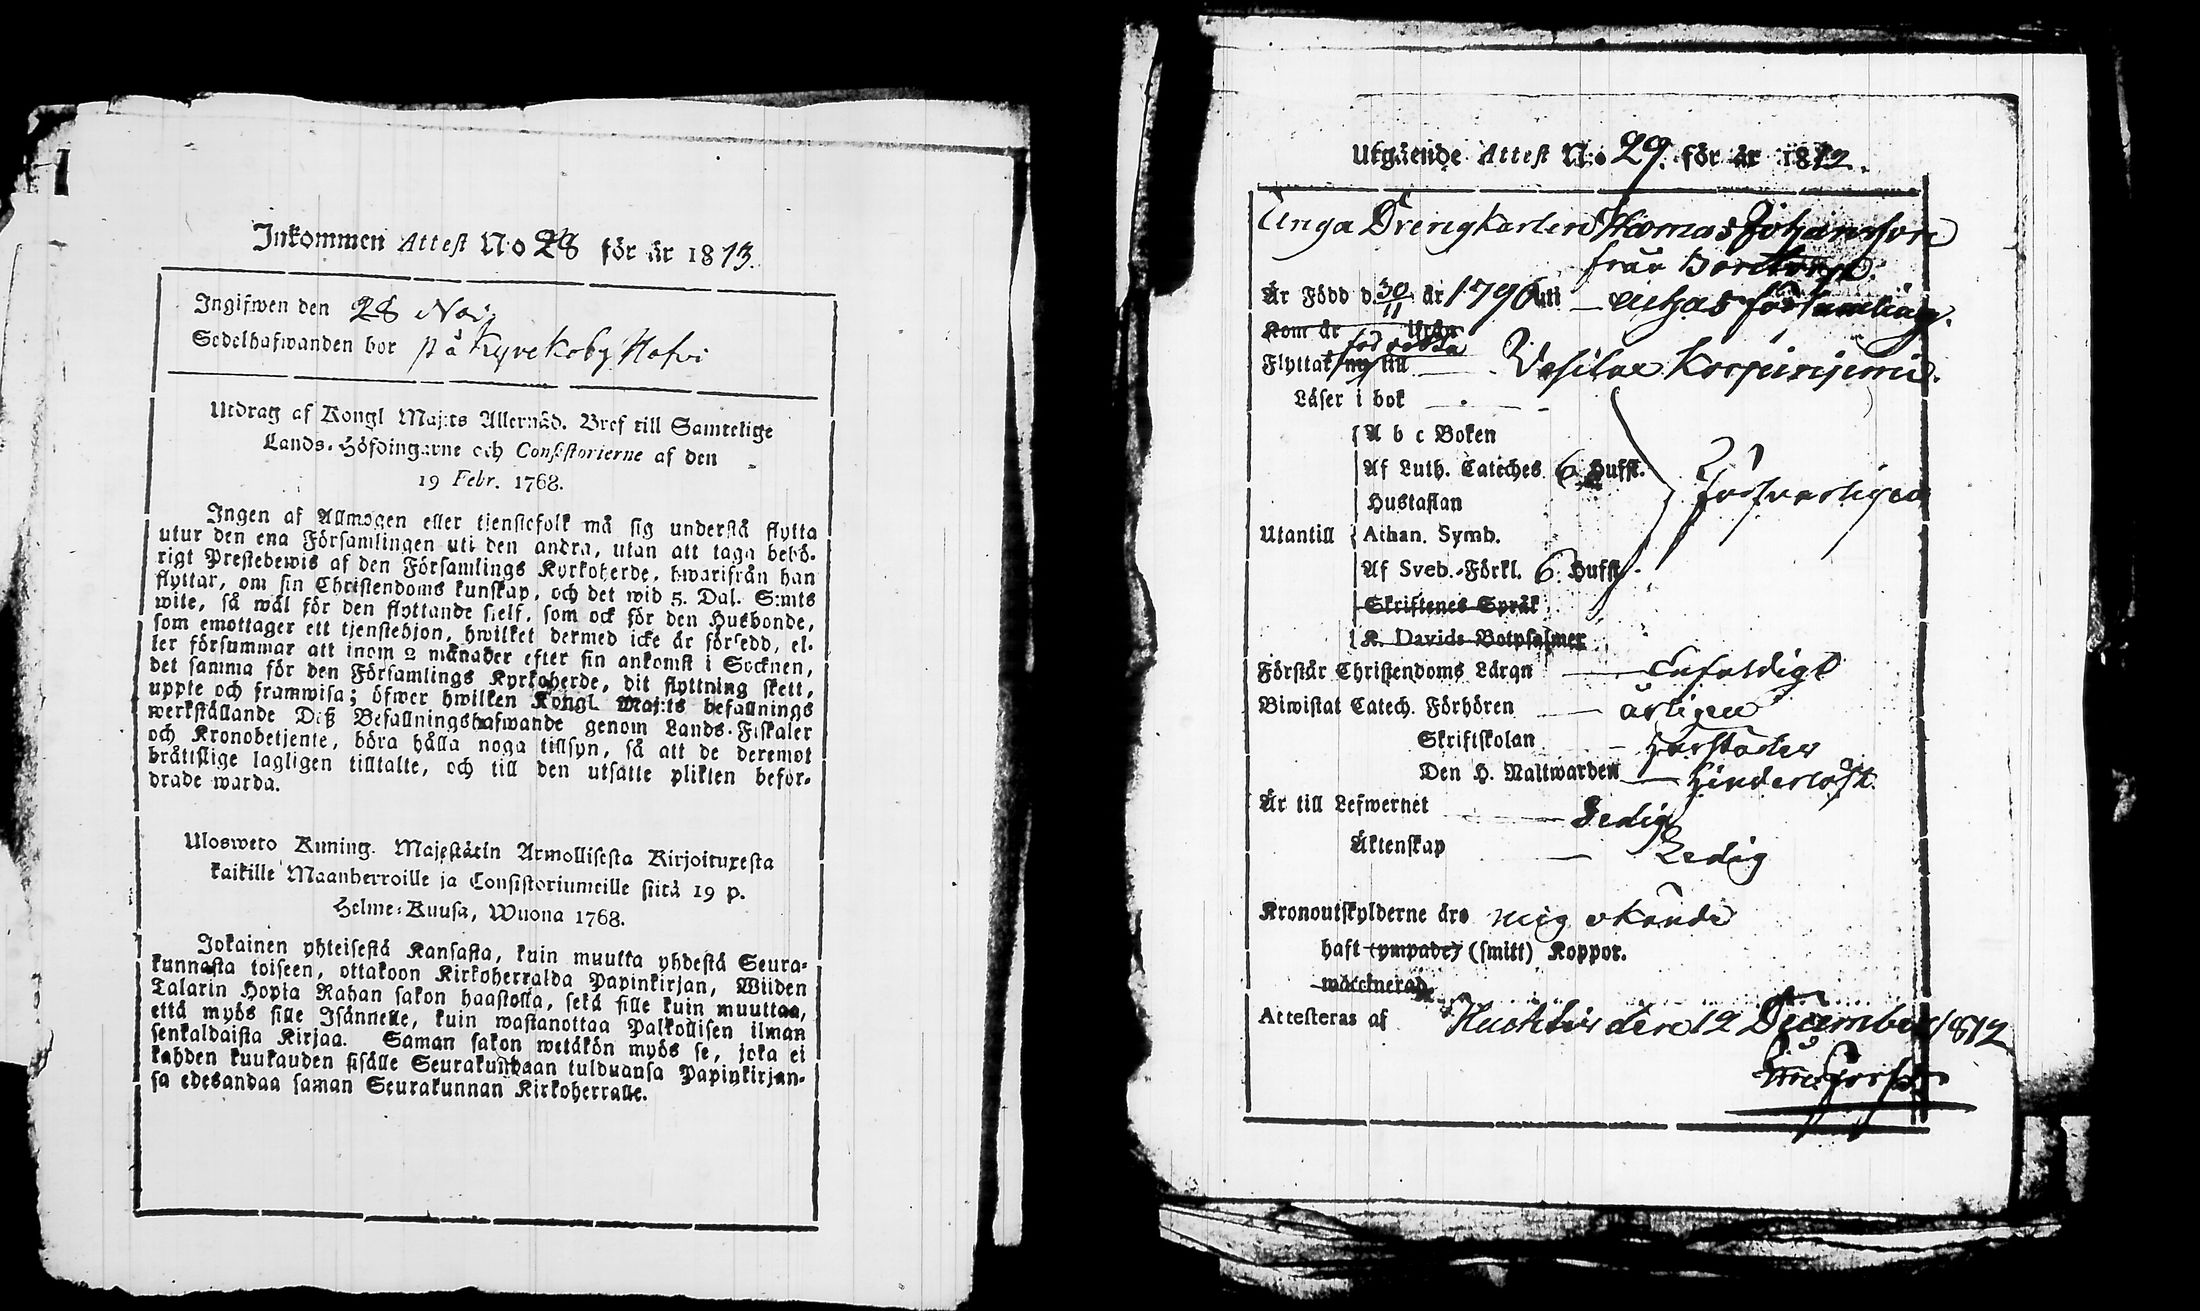 Inkommen Attest No 28 för år 1813.
Ingifwen den 28 Nov
Sedelhafwanden bor på Kyrckoby Hofvi
Utdrag af Kongl Maj:ts Allernåd. Bref till Samtelige
Lands-Höfdingarne och Consistorierne af den
19 Febr. 1768.
Ingen af Allmogen eller tjenstefolk må sig understå flytta
utur den ena Församlingen uti den andra, utan att taga behö-
rigt Prestebewis af den Församlings Kyrkoherde, hwarifrån han
flyttar, om sin Christendoms kunskap, och det wid 5. Dal. S:mts
wite, så wäl för den flyttande sjelf, som ock för den Husbonde,
som emottager ett tjenstehjon, hwilket dermed icke är försedd, el-
ler försummar att inom 2 månader efter sin ankomst i Socknen,
det samma för den Församlings Kyrkoherde, dit flyttning skett,
uppte och framwisa; öfwer hwilken Kongl. Maj:ts befallnings
werkställande Dess Befallningshafwande genom Lands-Fiskaler
och Kronobetjente, böra hålla noga tillsyn, så att de deremot
bråttslige lagligen tilltalte, och till den utsatte plikten befor-
drade warda.
Uloswето Kuning. Majestätin Armollisesta Kirjoituxesta
kaikille Maanherroille ja Consistoriumeille siitä 19 p.
Helme-Kuusa, Wuona 1768.
Jokainen yhteisestä Kansasta, kuin muutta yhdestä Seura-
kunnasta toiseen, ottakoon Kirkoherralda Papinkirjan, Wiiden
Talarin Hopia Rahan sakon haastolla, sekä sille kuin muuttaa,
että myös sille Isännelle, kuin wastanottaa Palkollisen ilman
senkaldaista Kirjaa. Saman sakon wetäkön myös se, joka ei
kahden kuukauden sisälle Seurakundaan tulduansa Papinkirjan-
sa edesandaa saman Seurakunnan Kirkoherralle.
Utgående Attest N:o 29. för år 1812.
Unga Drengkarlen Thomas Johansson
från
Är Född d 30/11 år 1796 uti församling.
Kom år ifrån
Flyttat nu till
Läser i bok
A b c Boken
Af Luth. Cateches 6. Hufst.
Hustaflan
Försvarligen
Utantill Athan. Symb.
Af Sveb.-Förkl. 6. Hufst.
Skriftenes Språk
K. Davids Botpsalmer
Förstår Christendoms Läran Enfaldigt
Biwistat Catech. Förhören årligen
Skriftskolan
Den H. Naltwarden Hinderlöst
Är till Lefwernet Sedig
Äktenskap Ledig
Kronoutskylderne äro mig okände
haft (ympade) (smitt) Koppor.
waccinerad
Attesteras af den 12 December 1812